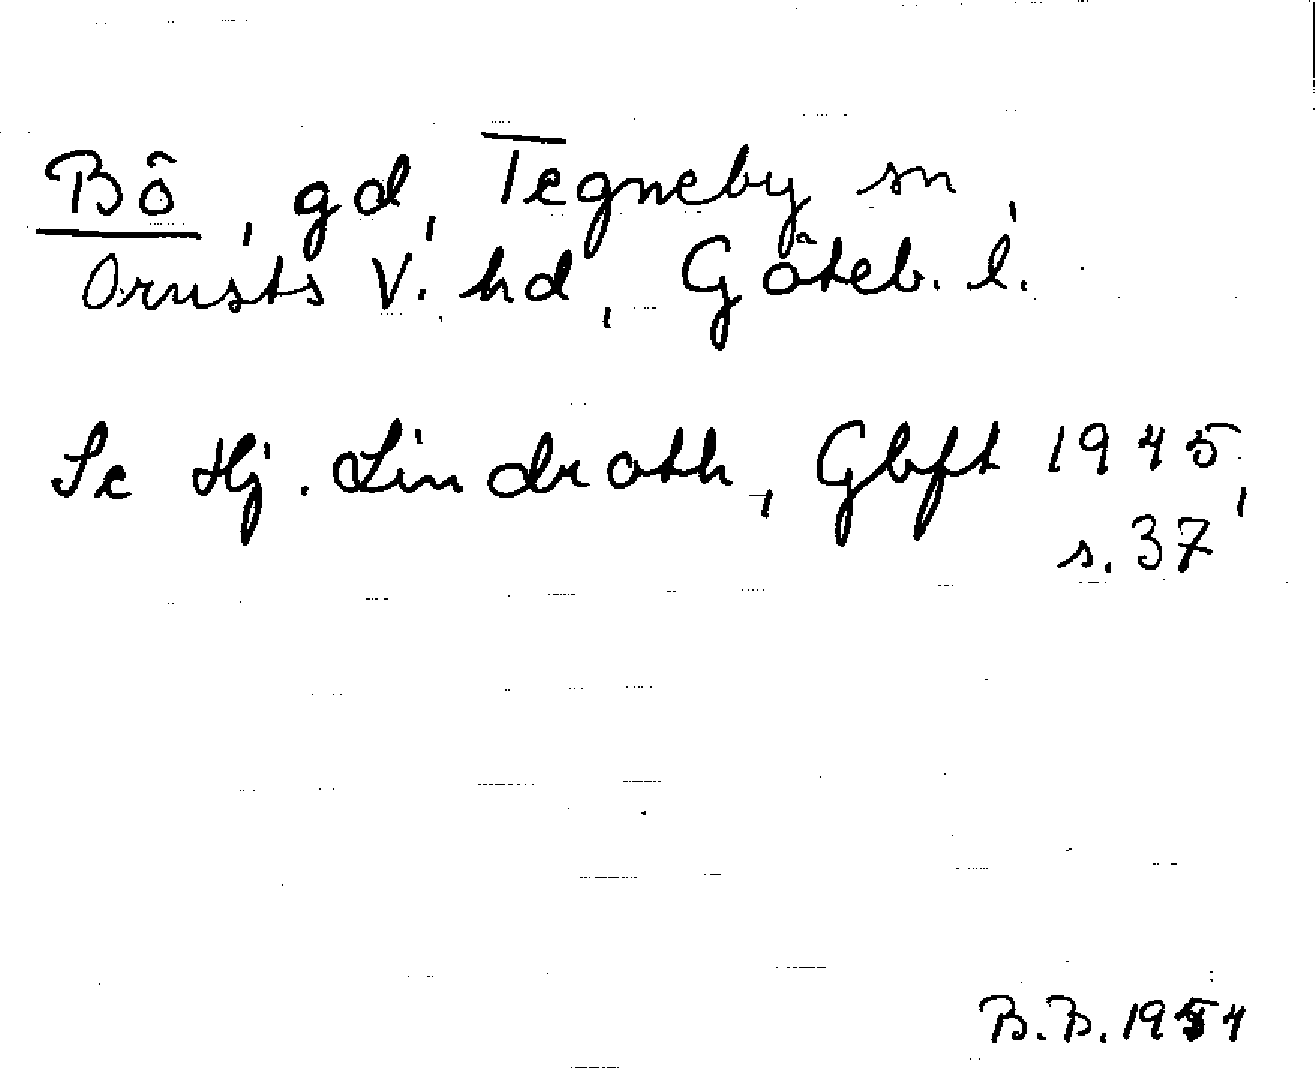 Bö, gd, Tegneby sn,
Orusts V. hd, Göteb. l.
Se Hj. Lindroth, Gbft 1945,
s. 37
B.B. 1954